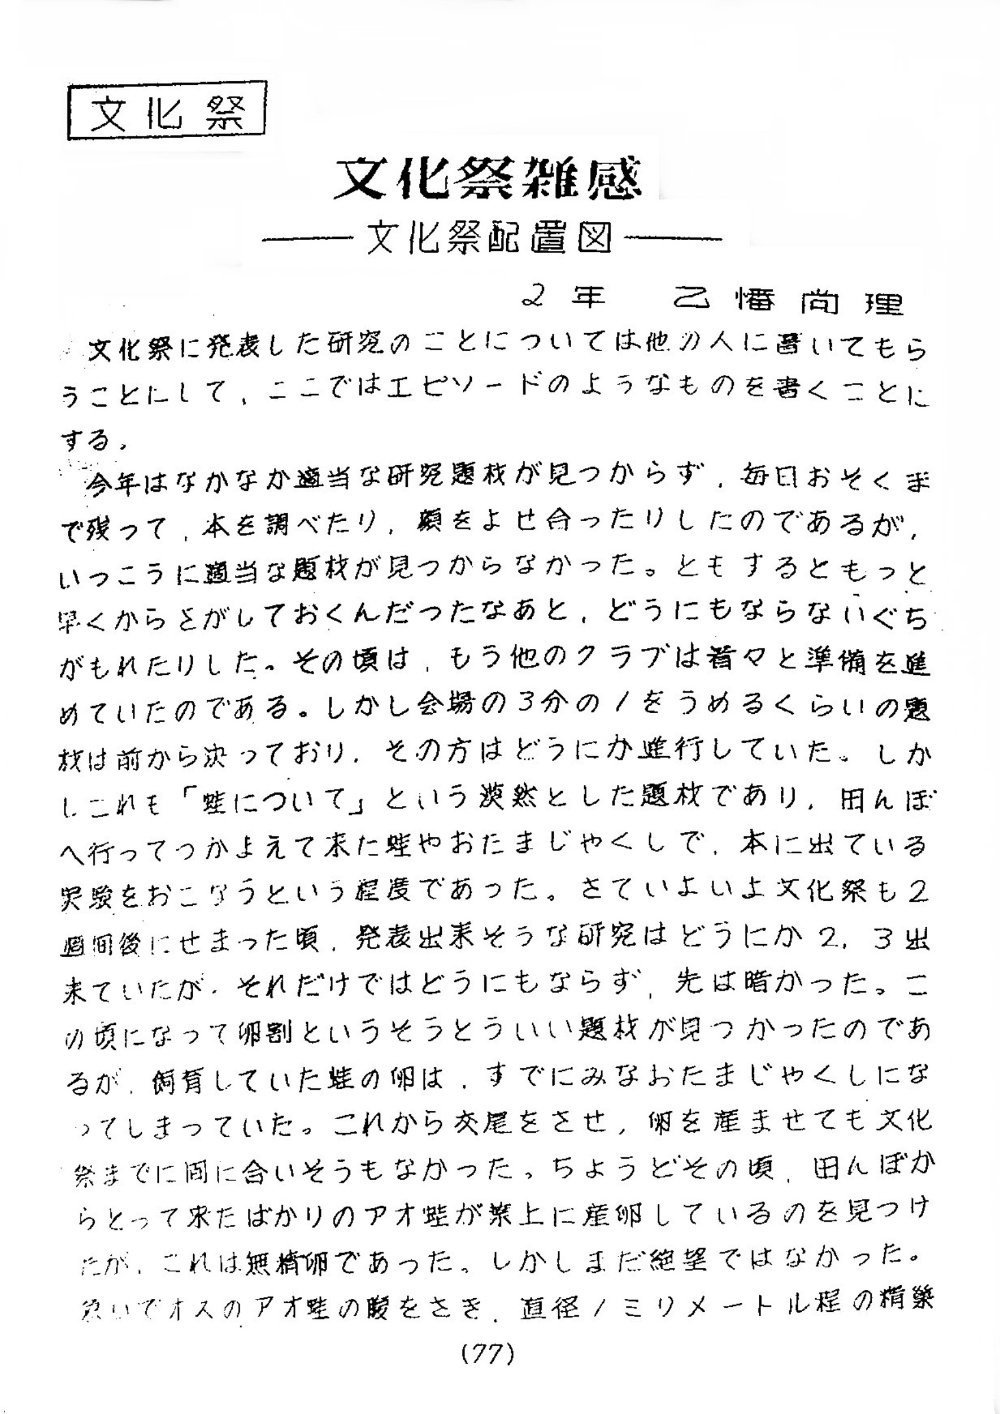 文化祭
文化祭雑感
──文化祭配置図──
2年 乙幡尚理
文化祭に発表した研究のことについては他の人に書いてもら
うことにして、ここではエピソードのようなものを書くことに
する。
今年はなかなか適当な研究題材が見つからず、毎日おそくま
で残って、本を調べたり、顔をよせ合ったりしたのであるが、
いっこうに適当な題材が見つからなかった。ともするともっと
早くからさがしておくんだったなあと、どうにもならないぐち
がもれたりした。その頃は、もう他のクラブは着々と準備を進
めていたのである。しかし会場の3分の1をうめるくらいの題
材は前から決っており、その方はどうにか進行していた。しか
しこれも「蛙について」という漠然とした題材であり、田んぼ
へ行ってつかまえて来た蛙やおたまじゃくしで、本に出ている
実験をおこなうという程度であった。さていよいよ文化祭も2
週間後にせまった頃、発表出来そうな研究はどうにか2,3出
来ていたが、それだけではどうにもならず、先は暗かった。こ
の頃になって卵割というそうとういい題材が見つかったのであ
るが、飼育していた蛙の卵は、すでにみなおたまじゃくしにな
ってしまっていた。これから交尾をさせ、卵を産ませても文化
祭までに間に合いそうもなかった。ちょうどその頃、田んぼか
らとって来たばかりのアオ蛙が葉上に産卵しているのを見つけ
たが、これは無精卵であった。しかしまだ絶望ではなかった。
急いでオスのアオ蛙の腹をさき、直径1ミリメートル程の精巣
(77)